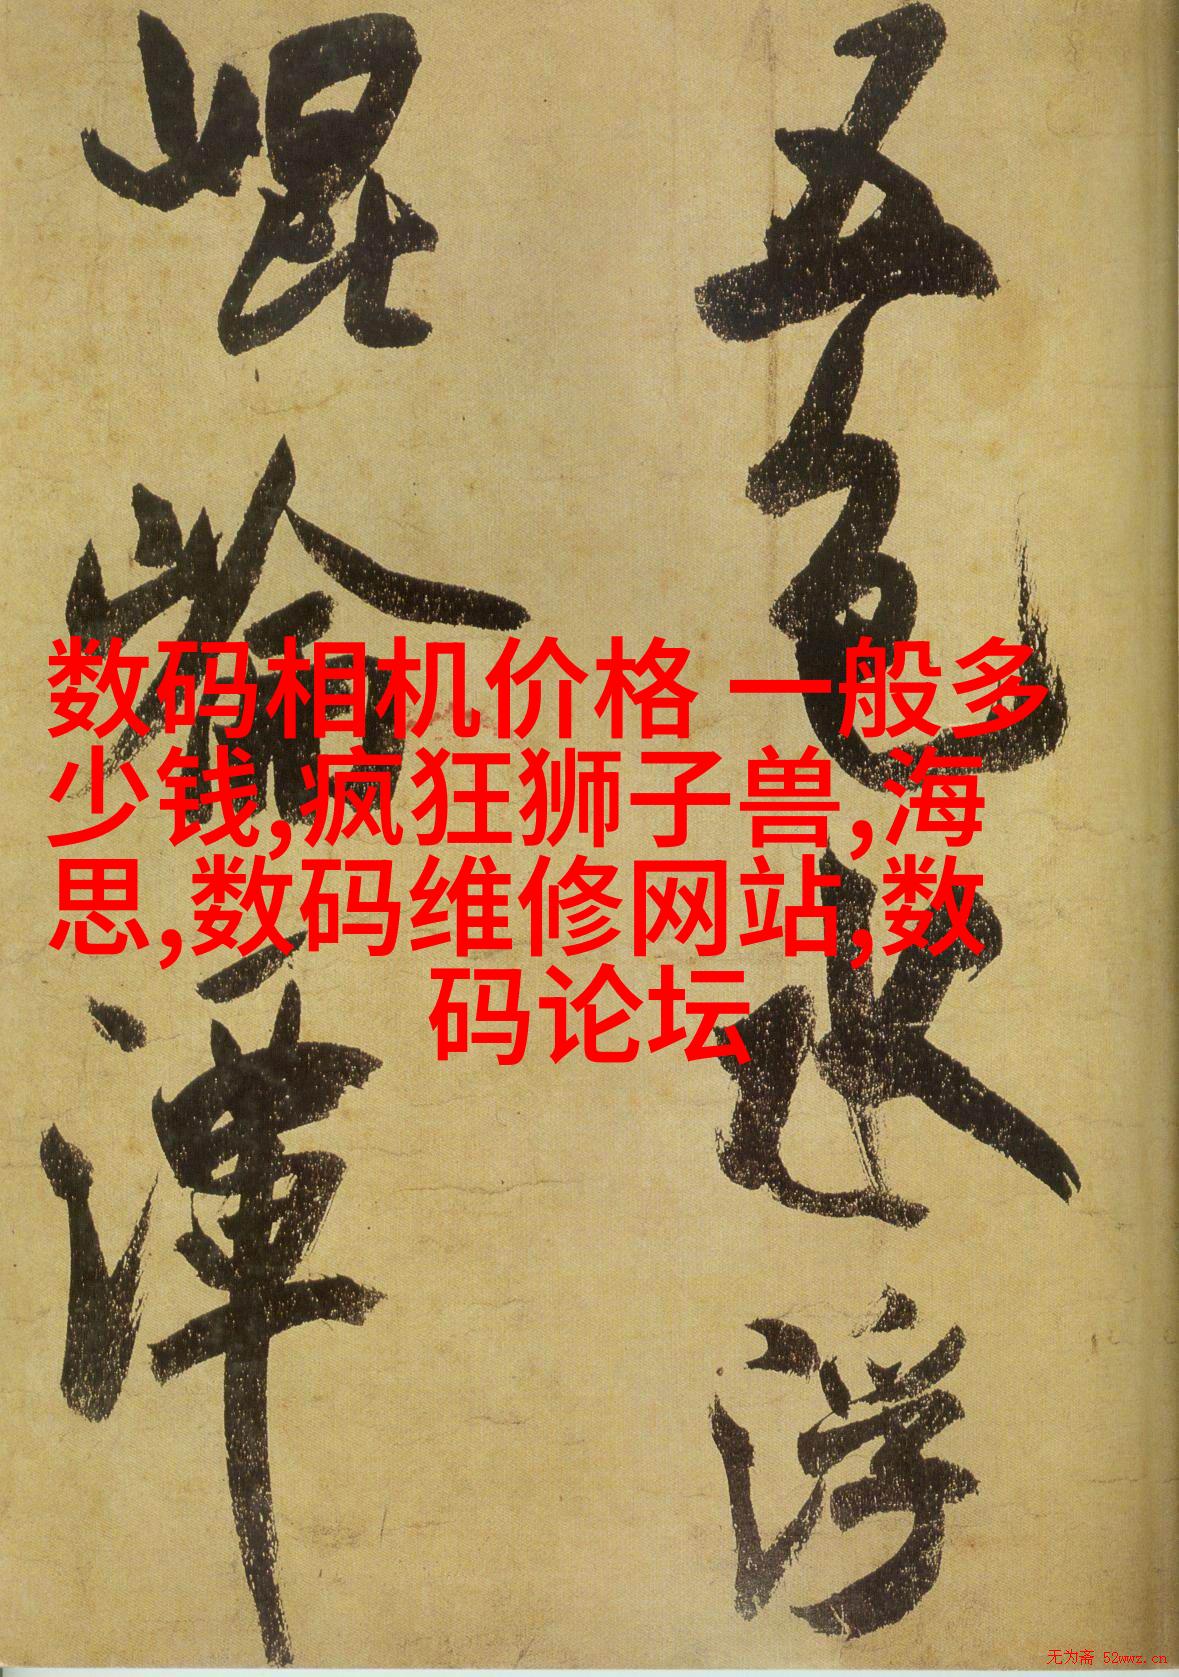 五色水浮
崐崘潭
数码相机价格 一般多
少钱,疯狂狮子兽,海
思,数码维修网站,数
码论坛
无为斋 52wwz.cn